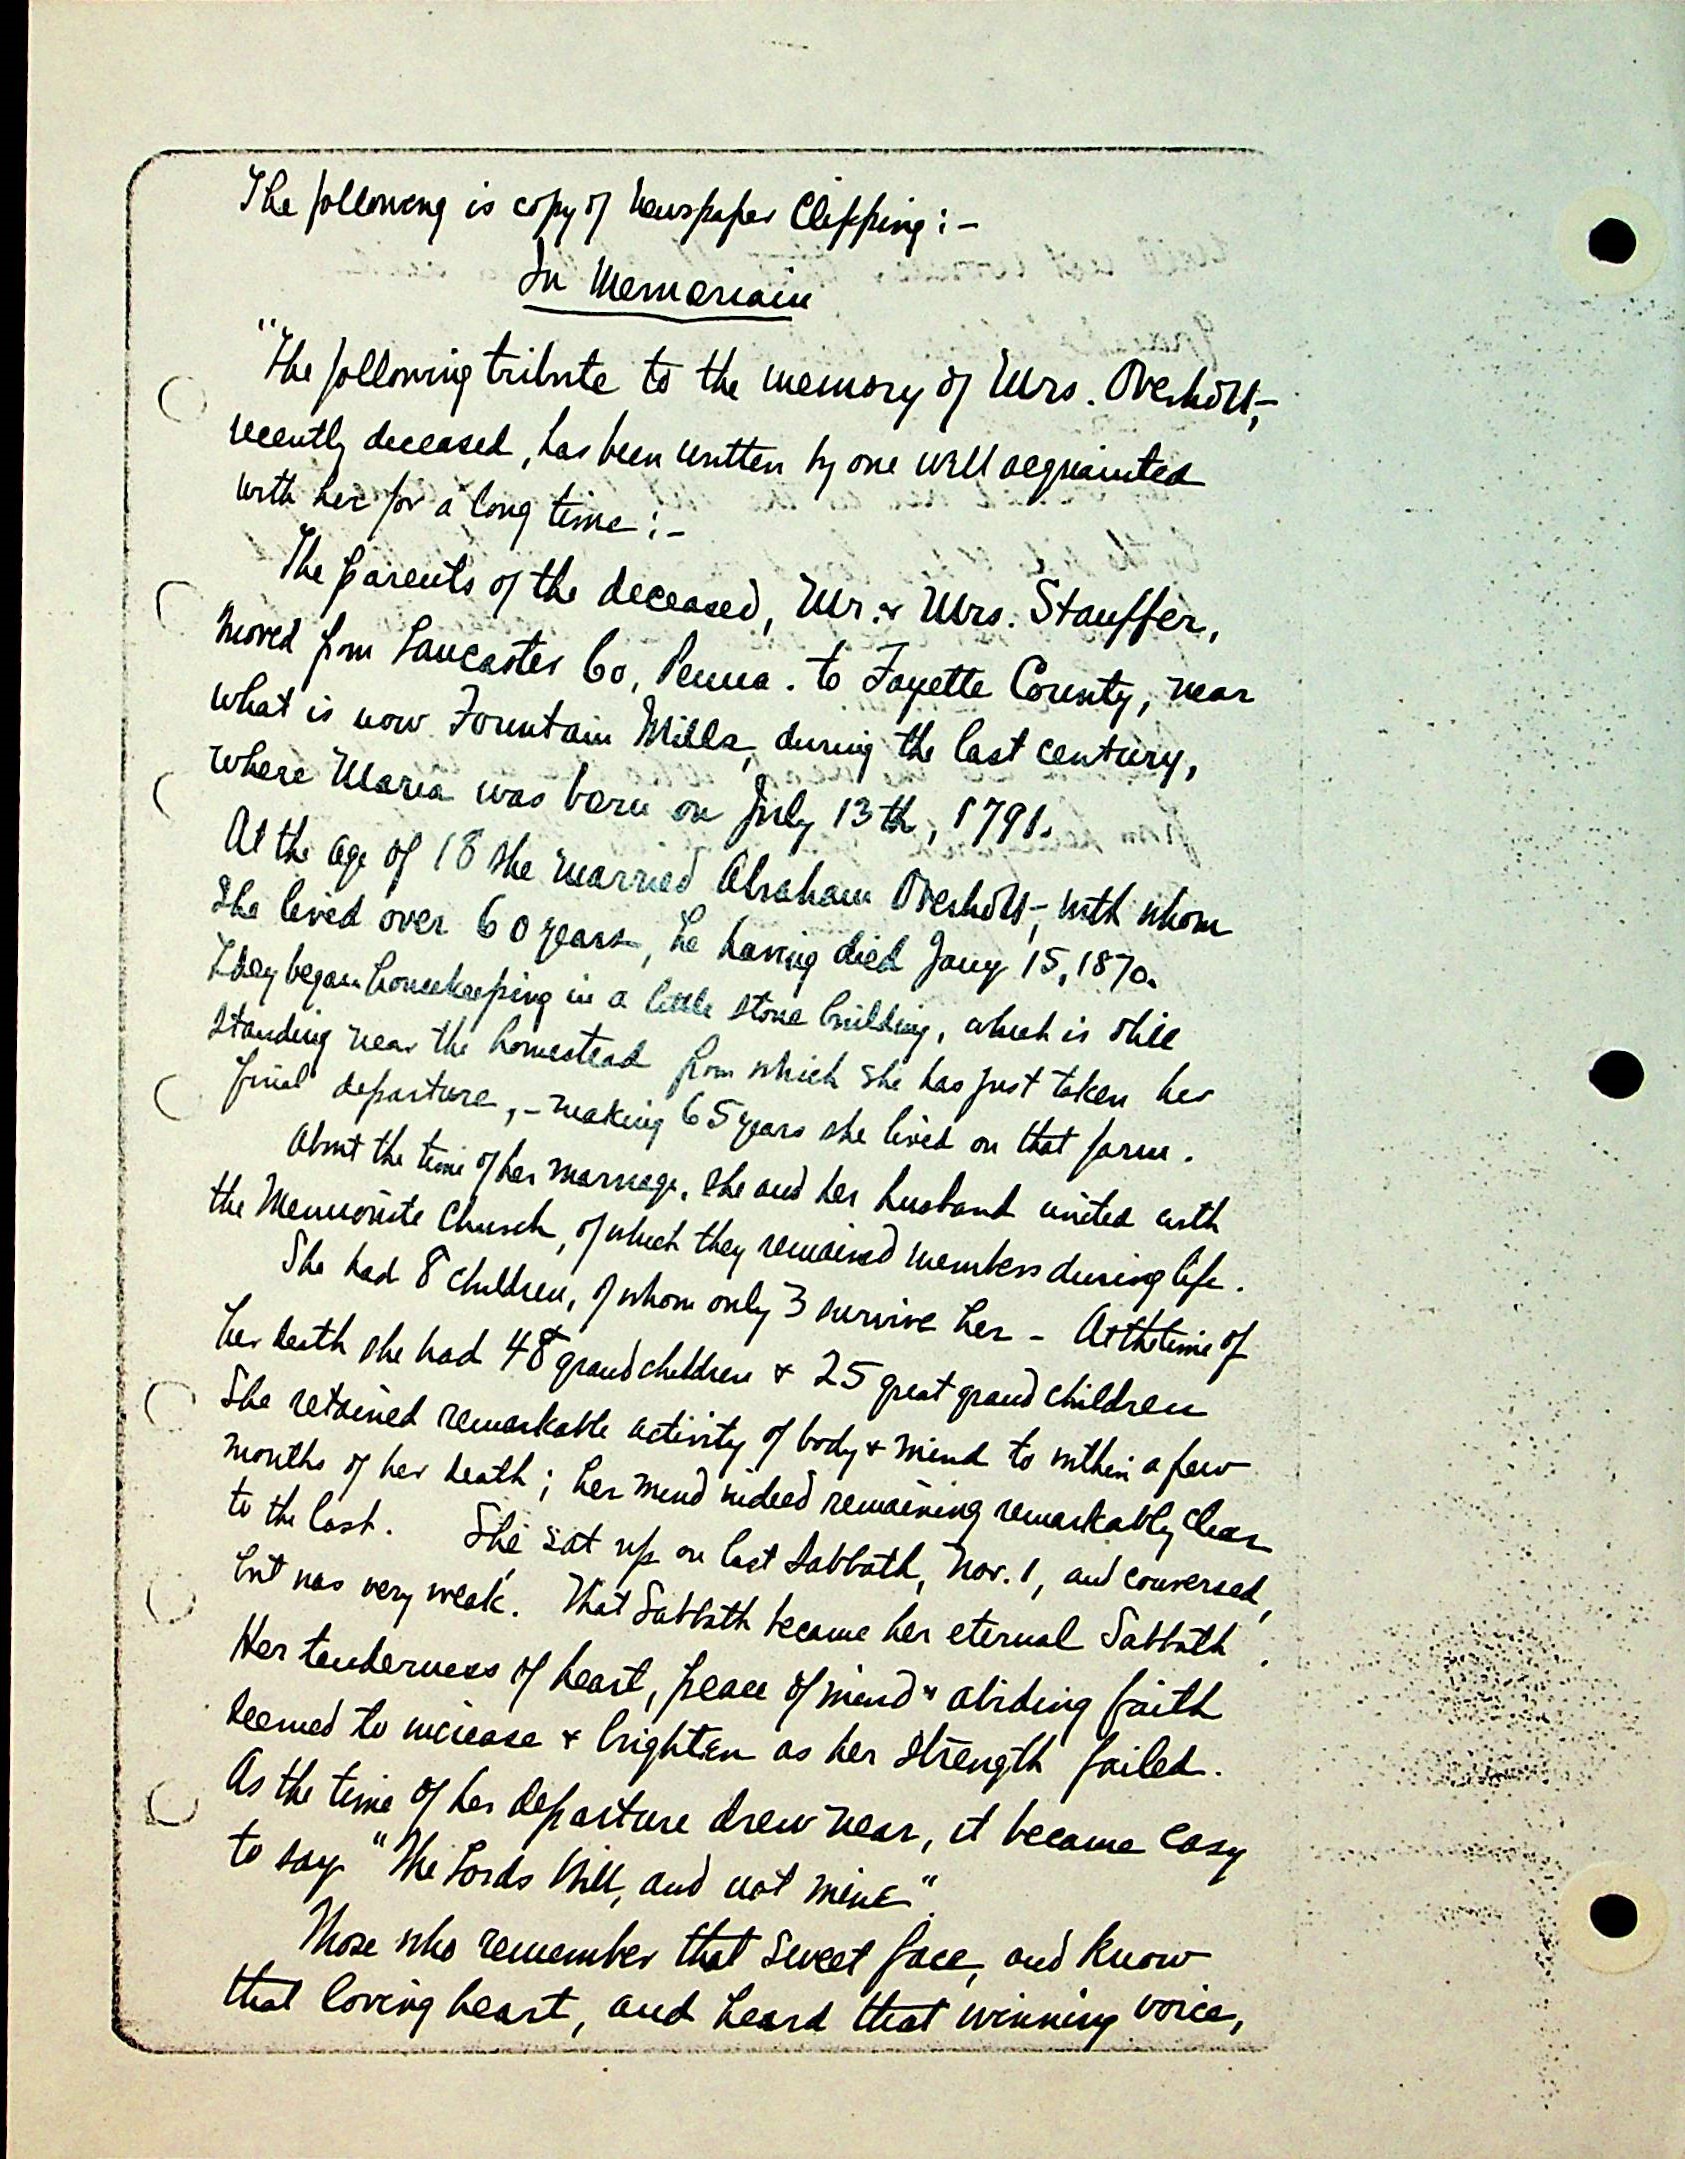 The following is copy of Newspaper Clipping:-
In Memoriam
"The following tribute to the memory of Mrs. Overholt,
recently deceased, has been written by one well acquainted
with her for a long time:-
The parents of the deceased, Mr. & Mrs. Stauffer,
moved from Lancaster Co, Penna. to Fayette County, near
what is now Fountain Mills, during the last century,
where Maria was born on July 13th, 1791.
At the age of 18 she married Abraham Overholt, with whom
she lived over 60 years, he having died Jany 15, 1870.
They began housekeeping in a little stone building, which is still
standing near the homestead from which she has just taken her
final departure, - making 65 years she lived on that farm.
About the time of her marriage, she and her husband united with
the Mennonite Church, of which they remained members during life.
She had 8 children, of whom only 3 survive her - At the time of
her death she had 48 grandchildren & 25 great grand children
She retained remarkable activity of body & mind to within a few
months of her death; her mind indeed remaining remarkably clear
to the last. She sat up on last Sabbath, Nov. 1, and conversed,
but was very weak. That Sabbath became her eternal Sabbath.
Her tenderness of heart, peace of mind & abiding faith
seemed to increase & brighten as her strength failed.
As the time of her departure drew near, it became easy
to say "The Lords Will, and not mine".
Those who remember that sweet face, and know
that loving heart, and heard that winning voice,